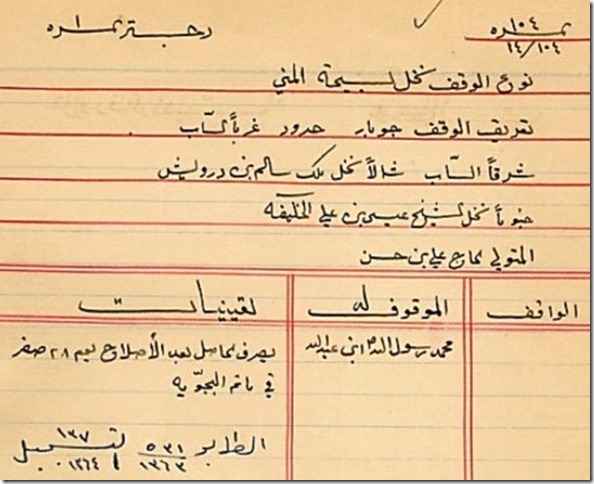 نمره ١٠٤ دفتر نمره ١
١٤/١٠٤
نوع الوقف نخل لسبيحة المني
تعريف الوقف جوبار حدود غرباً السَّاب
شرقاً السَّاب شمالاً نخل ملك سالم بن درويش
جنوباً نخل الشيخ عيسى بن علي الخليفه
المتولي الحاج علي بن حسن
الواقف الموقوف له تعيينات
محمد رسول الله ابن عبد الله
يصرف الحاصل بعد الأصلاح ليوم ٢٨ صفر
في ماتم
الطابو ٥٣١/١٣٦٣ التسجيل ١٣٧/١٣٦٤